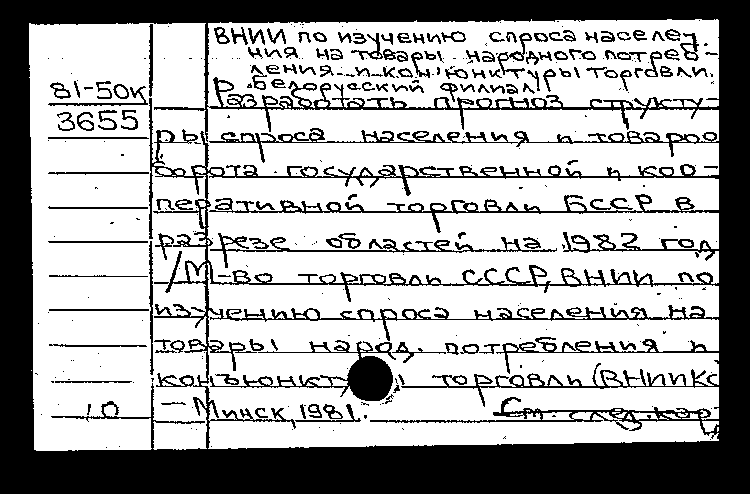 ВНИИ по изучению спроса населе-
ния на товары народного потреб-
ления и конъюнктуры торговли.
Белорусский филиал
81-50к
Разработать прогноз структу-
3655
ры спроса населения и товароо
борота государственной и коо-
перативной торговли БССР в
разрезе областей на 1982 год
/М-во торговли СССР, ВНИИ по
изучению спроса населения на
товары народ. потребления и
конъюнкт ы торговли (ВНИИКС
10 - Минск, 1981. См. след. кар